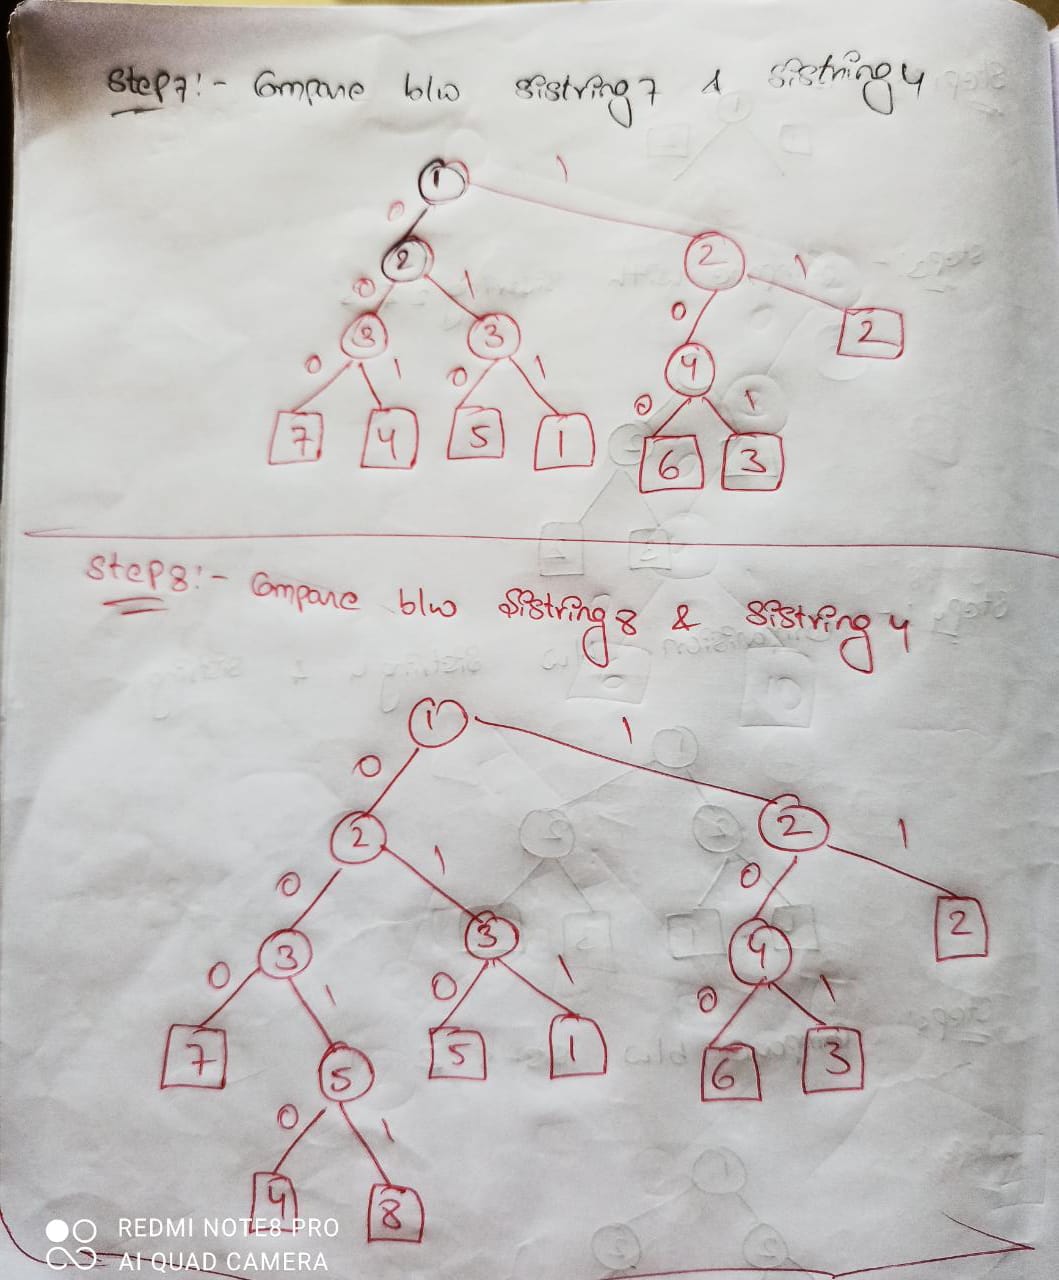 Step7:- Compare b/w sistring7 & sistring4
1
0 1
2 2
0 1 0 1
3 3 4 2
0 1 0 1 0 1
7 4 5 1 6 3
Step8:- Compare b/w sistring8 & sistring4
1
0 1
2 2
0 1 0 1
3 3 4 2
0 1 0 1 0 1
7 5 5 1 6 3
0 1
4 8
REDMI NOTE8 PRO
AI QUAD CAMERA